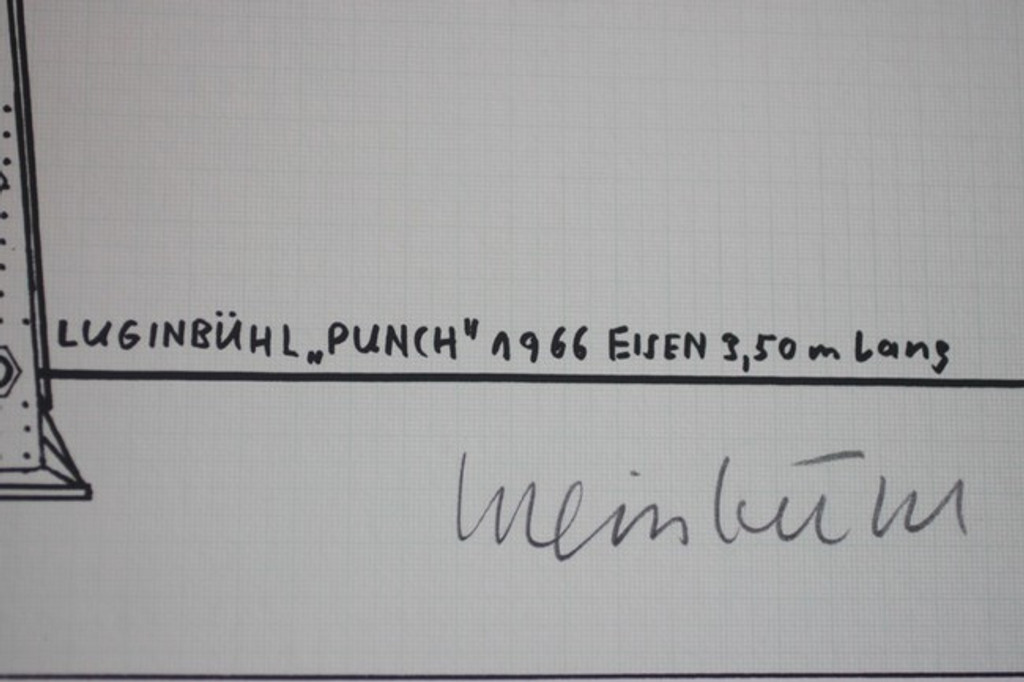 LUGINBÜHL „PUNCH" 1966 EISEN 3,50 m Lang
Luginbühl